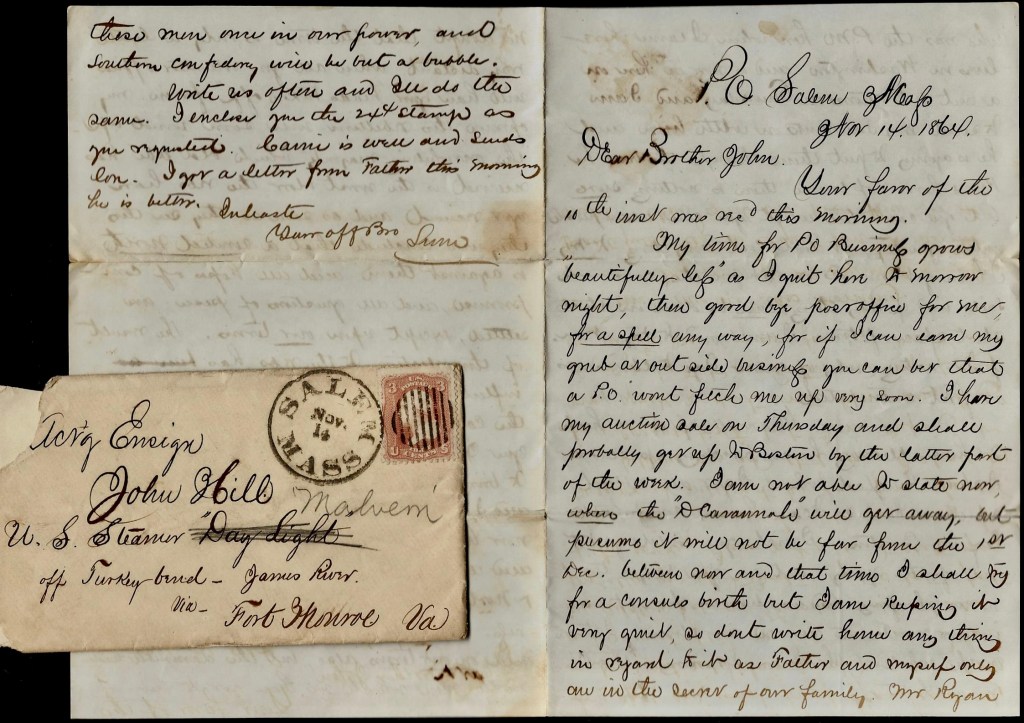 P.O. Salem Mass
Nov 14. 1864.
Dear Brother John.
Your favor of the
10th inst was rec'd this morning.
My time for P O Business grows
"beautifully less" as I quit here to morrow
night, then good bye post office for me,
for a spell any way, for if I can earn my
grub at out side business you can bet that
a P.O. wont fetch me up very soon. I have
my auction sale on Thursday and shall
probably get up to Boston by the latter part
of the week. I am not able to state now,
when the "D Cavannah" will get away, but
presume it will not be far from the 1st
Dec. between now and that time I shall try
for a consuls birth but I am keeping it
very quiet, so dont write home any thing
in regard to it as Father and myself only
are in the secret of our family. Mr Ryan
these men once in our power, and
Southern confedery will be but a bubble.
Write us often and I'll do the
same. I enclose you the 24¢ stamp as
you requested. is well and sends
love. I got a letter from Father this morning
he is better. In haste
Your aff Bro
SALEM
NOV.
14
MASS
3 3
U.S. POSTAGE
THREE CENTS
U S
Act'g Ensign
John Hill
Malvern
U. S. Steamer "Day light"
off Turkey bend - James River.
Via -
Fort Monroe Va